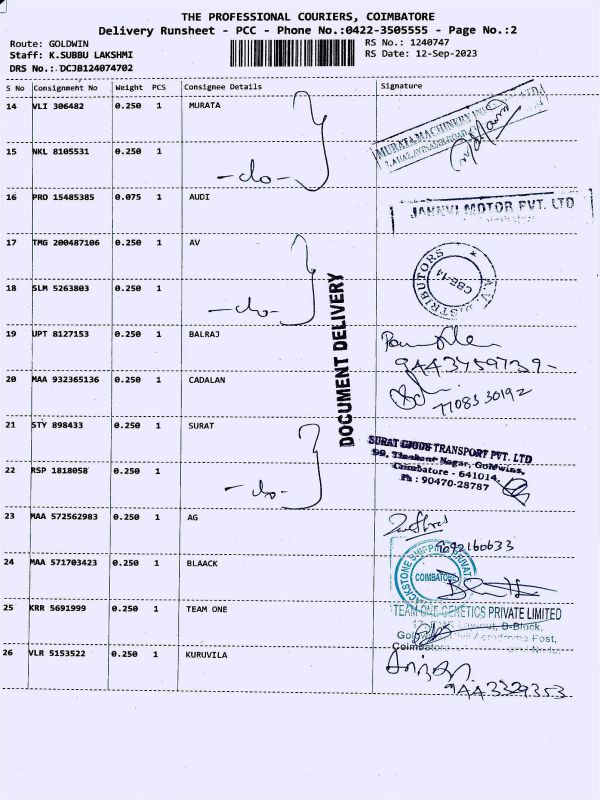 THE PROFESSIONAL COURIERS, COIMBATORE
Delivery Runsheet - PCC - Phone No.:0422-3505555 - Page No.:2
Route: GOLDWIN
RS No.: 1240747
Staff: K.SUBBU LAKSHMI
RS Date: 12-Sep-2023
DRS No.: DCJB124074702
S No Consignment No Weight PCS Consignee Details Signature
14 VLI 306482 0.250 1 MURATA
MURATA MACHINERY
15 NKL 8105531 0.250 1 -do-
16 PRO 15485385 0.075 1 AUDI
MOTOR PVT. LTD
17 TMG 200487106 0.250 1 AV
A.V. DISTRIBUTORS
CBE-14
18 SLM 5263803 0.250 1 -do-
DOCUMENT DELIVERY
19 UPT 8127153 0.250 1 BALRAJ
9443759739-
20 MAA 932365136 0.250 1 CADALAN
7708330192
21 STY 898433 0.250 1 SURAT
SURAT GOODS TRANSPORT PVT. LTD
Nagar, Goldwins,
Coimbatore - 641014.
Ph : 90470-28787
22 RSP 1818058 0.250 1 -do-
23 MAA 572562983 0.250 1 AG
9092160633
24 MAA 571703423 0.250 1 BLAACK
COIMBATORE
25 KRR 5691999 0.250 1 TEAM ONE
TEAM ONE GENETICS PRIVATE LIMITED
B-Block,
Post,
Coimbatore
26 VLR 5153522 0.250 1 KURUVILA
9443329353